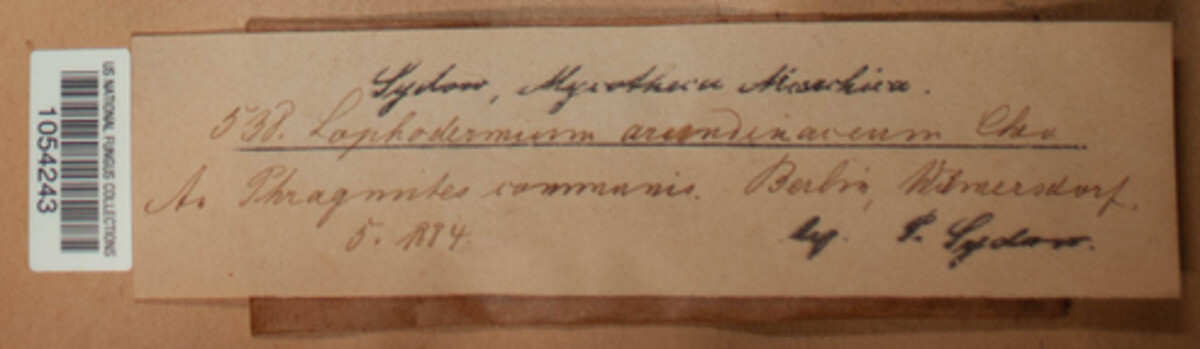 Sydow, Mycotheca Marchica.
538. Lophodermium arundinaceum Chev.
An Phragmites communis. Berlin, Wilmersdorf.
5. 1884.
leg. P. Sydow.
US NATIONAL FUNGUS COLLECTIONS
1054243